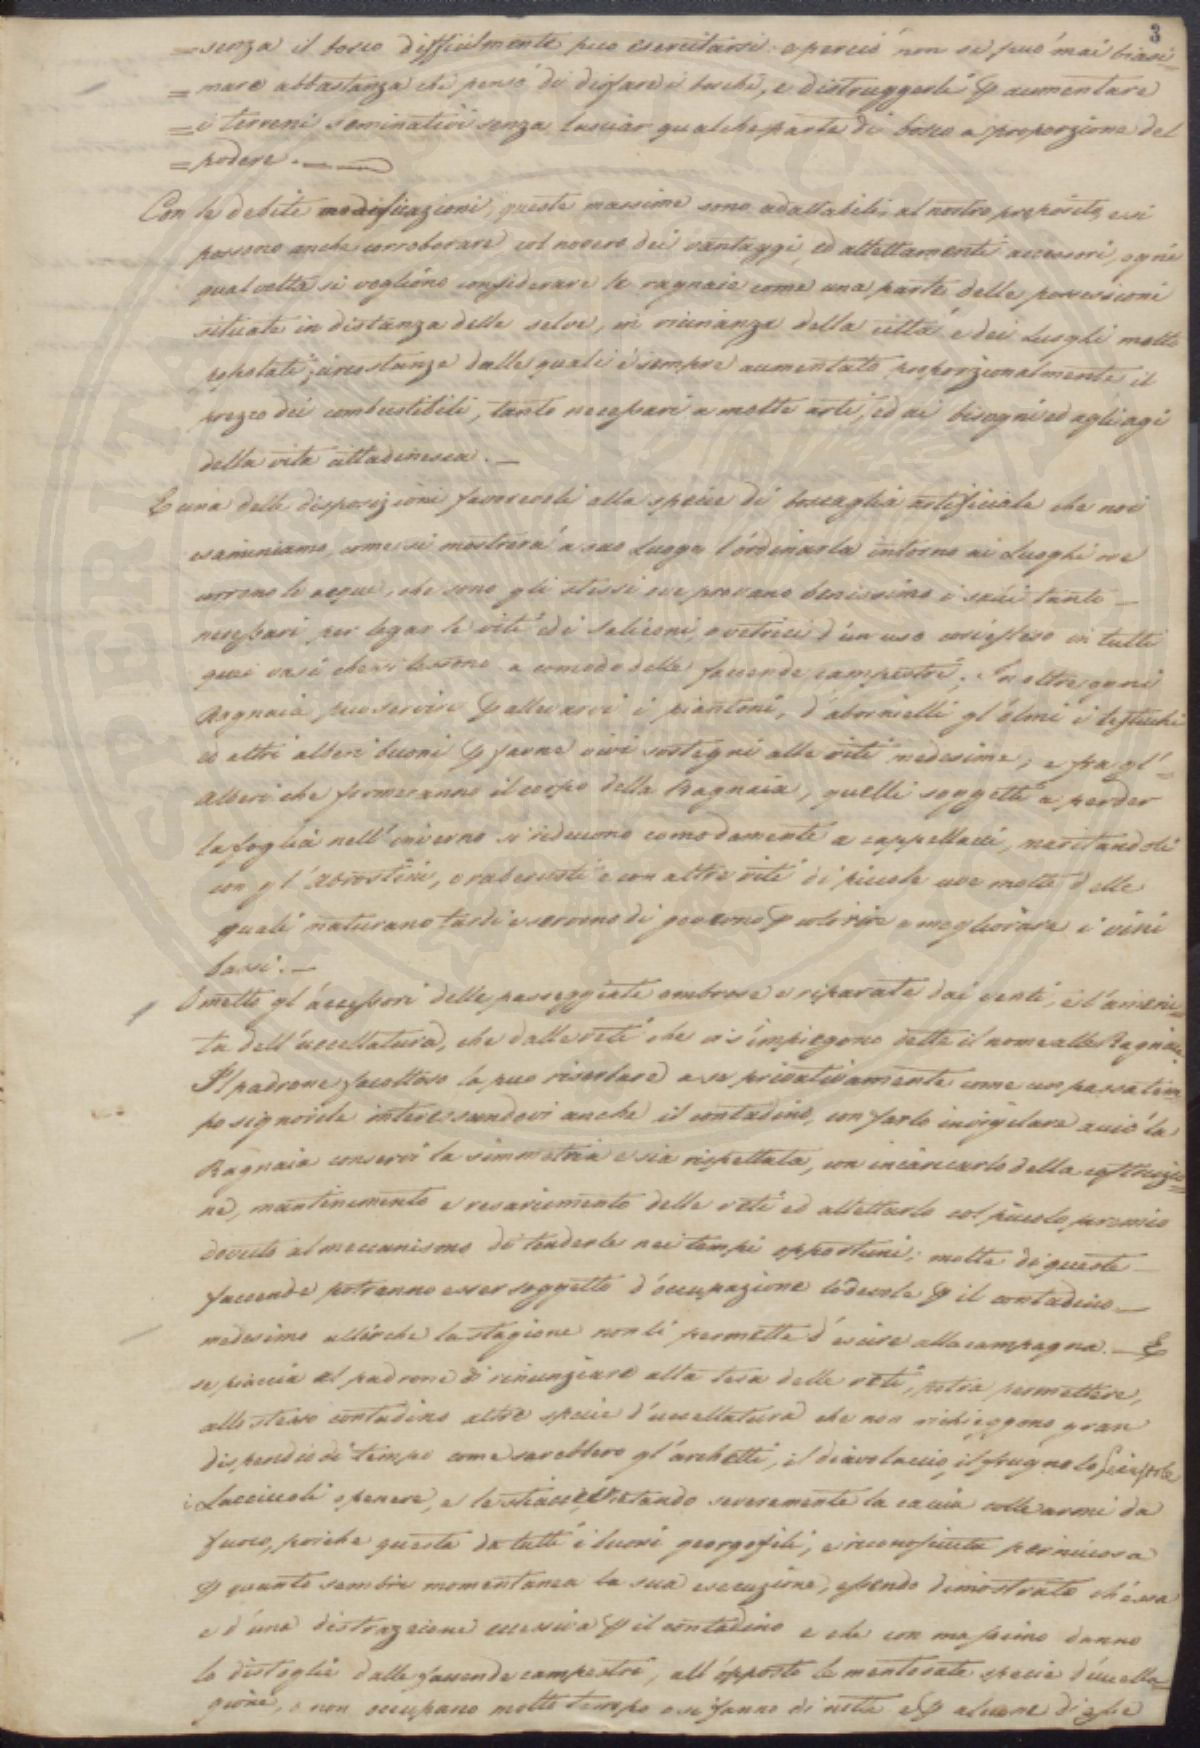 3
=senza il bosco difficilmente puo esercitarsi: e perciò non si può mai biasi=
=mare abbastanza chi pensò di disfare i boschi, e distruggerli p aumentare
=i terreni seminativi senza lasciar qualche parte di bosco a proporzione del
=podere.
Con le debite modificazioni, queste massime sono adattabili, al nostro proposito, e si
possono anche corroborare col novero dei vantaggi, ed allettamenti accessori, ogni
qual volta si vogliono considerare le ragnaie come una parte delle possessioni
situate in distanza delle selve, in vicinanza della città e dei Luoghi molto
popolati; circostanze dalle quali è sempre aumentato proporzionalmente il
prezzo dei combustibili, tanto necessari a molte arti, ed ai bisogni ed agli agi
della vita cittadinesca.
E una delle disposizioni favorevoli alla specie di boscaglia artificiale che noi
esaminiamo, come si mostrerà a suo Luogo l'ordinarla intorno ai Luoghi ove
corrono le acque, che sono gli stessi ove provano benissimo i salci tanto
necessari per legar le viti ed i Saliconi, o vetrici d'un uso così esteso in tutti
quei vasi che si tessono a comodo delle faccende campestri. Inoltre ogni
Ragnaia può servire p allevarvi i piantoni, d'abornielli gl'olmi i testucchi
ed altri alberi buoni p farne vivi sostegni alle viti medesime; e fra gl'=
Alberi che formeranno il corpo della Ragnaia, quelli soggetti a perder
la foglia nell'inverno si riducono comodamente a cappellacci, maritandoli
con gl'Abrostini, o raberusti e con altre viti di piccole uve molte delle
quali maturano tardi e servono di governo p colorire e megliorare i vini
bassi.
Ometto gl'accessori delle passeggiate ombrose e riparate dai venti, e l'ameni=
ta dell'uccellatura, che dalle reti che vi s'impiegono dette il nome alle Ragnaie
Il padrone facoltoso la può riserbare a se privativamente come un passatem
po signorile interessandovi anche il contadino, con farlo invigilare acciò la
Ragnaia conservi la simmetria e sia rispettata, con incaricarlo della costruzio=
ne, mantinemento e resarcimento delle reti ed allettarlo col piccolo premio
dovuto al meccanismo di tenderle nei tempi opportuni; molte di queste
faccende potranno esser soggetto d'occupazione lodevole p il contadino
medesimo allorche la stagione non li permetta d'escire alla campagna. E
se piaccia al padrone di rinunziare alla tesa delle reti, potrà permettere,
allo stesso contadino altre specie d'uccellatura che non richieggono gran
dispendio di tempo come sarebbero gl'archetti, il diavolaccio, il frugnolo
i Lacciuoli o penere, e le stiacce, vietando severamente la caccia colle armi da
fuoco, poichè questa da tutti i buoni georgofili, e riconosciuta perniciosa
p quanto sembri momentanea la sua esecuzione, essendo dimostrato ch'essa
e d'una distrazione eccessiva p il contadino e che con massimo danno
lo distoglie dalle faccende campestri, all'opposto le mentovate specie d'uccella=
gione, o non occupano molto tempo o si fanno di notte e p alcune di esse